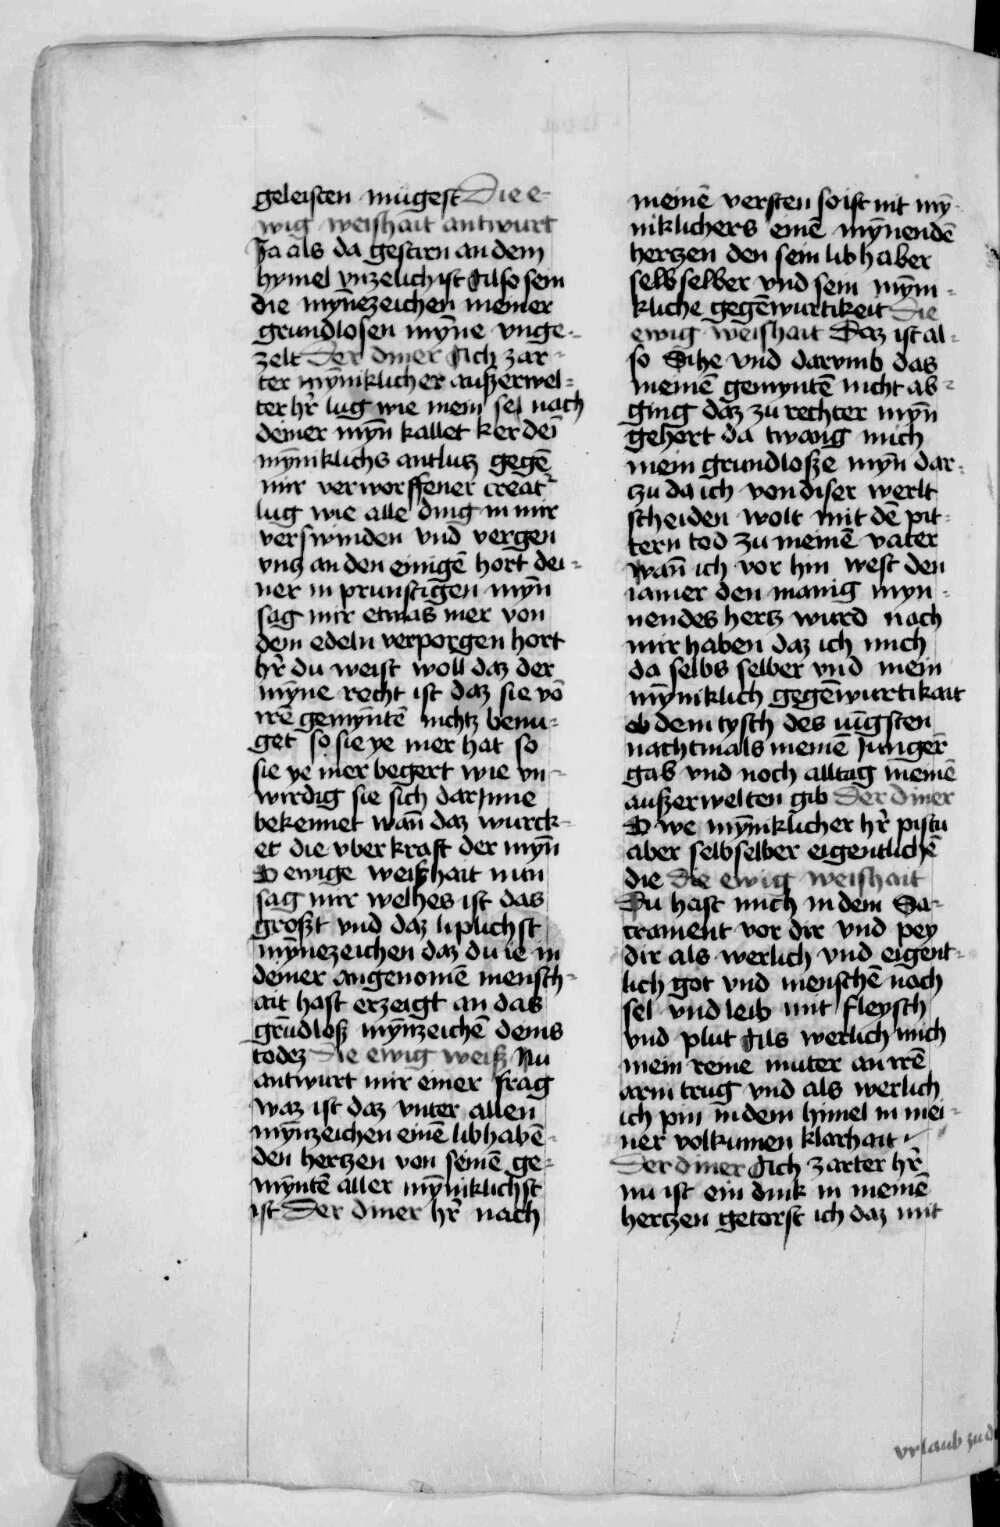 geleisten mugest Die e-
wig weishait antwurt
Ja als da gestirn an dem
hymel vnzelich ist Also sein
die mynezeichen meiner
grundlosen myñe vnge-
zelt Der diner Ach zar-
ter mỹniklicher außerwel-
ter hr̄ lug wie mein sel nach
deiner myñ kallet ker dei
mỹniklichs antlutz gegē
mir verworffener creat᷑
lug wie alle ding in mir
verswinden vnd vergen
vntz an den einigē hort dei-
ner in prunstigen myñ
sag mir etwas mer von
dem edeln verporgen hort
hr̄ du weist woll daz der
mỹne recht ist daz sie vō
irē gemyntē nichtz benu-
get so sie ye mer hat so
sie ye mer begert wie vn-
wirdig sie sich darJnne
bekennet wañ daz wurck-
et die vber kraft der myñ
O ewige weißhait nun
sag mir welhes ist das
großt vnd daz liplichst
mỹnezeichen daz du ie in
deiner angenomē mensch-
ait hast erzeigt an das
grūdloß mỹnzeichē deins
todez Die ewig weiß Nu
antwurt mir einer frag
waz ist daz vnter allen
mỹnzeichen einē libhabē-
den hertzen von seinē ge-
mỹntē aller mỹniklichst
ist Der diner hr̄ nach
meinē versten so ist nit mỹ-
niklichers einē mỹnendē
hertzen den sein libhaber
selb selber vnd sein mỹni-
kliche gegēwurtikeit Die
ewig weishait Daz ist al-
so Sihe vnd darvmb das
meinē gemyntē nicht ab-
ging daz zu rechter myñ
gehort da twang mich
mein grundloße myñ dar-
tzu da ich von diser werlt
scheiden wolt mit dē pit-
tern tod zu meinē vater
wañ ich vor hin west den
iamer den manig myn-
nendes hertz wurd nach
mir haben daz ich mich
da selbs selber vnd mein
mỹniklich gegēwurtikait
ob dem tysch des iūgsten
nachtmals meinē Jungēr
gab vnd noch alltag meinē
außerwelten gib Der diner
O we mỹniklicher hr̄ pistu
aber selb selber eigentlichē
die Die ewig weishait
Du hast mich in dem Sa-
crament vor dir vnd pey
dir als werlich vnd eigent-
lich got vnd menschē nach
sel vnd leib mit fleysch
vnd plut Als werlich mich
mein reine muter an irē
arm trug vnd als werlich
ich pin in dem himel in mei-
ner volkumen klarhait
Der diner Ach zarter hr̄
nu ist ein dink in meinē
hertzen getorst ich daz mit
vrlaub zu d